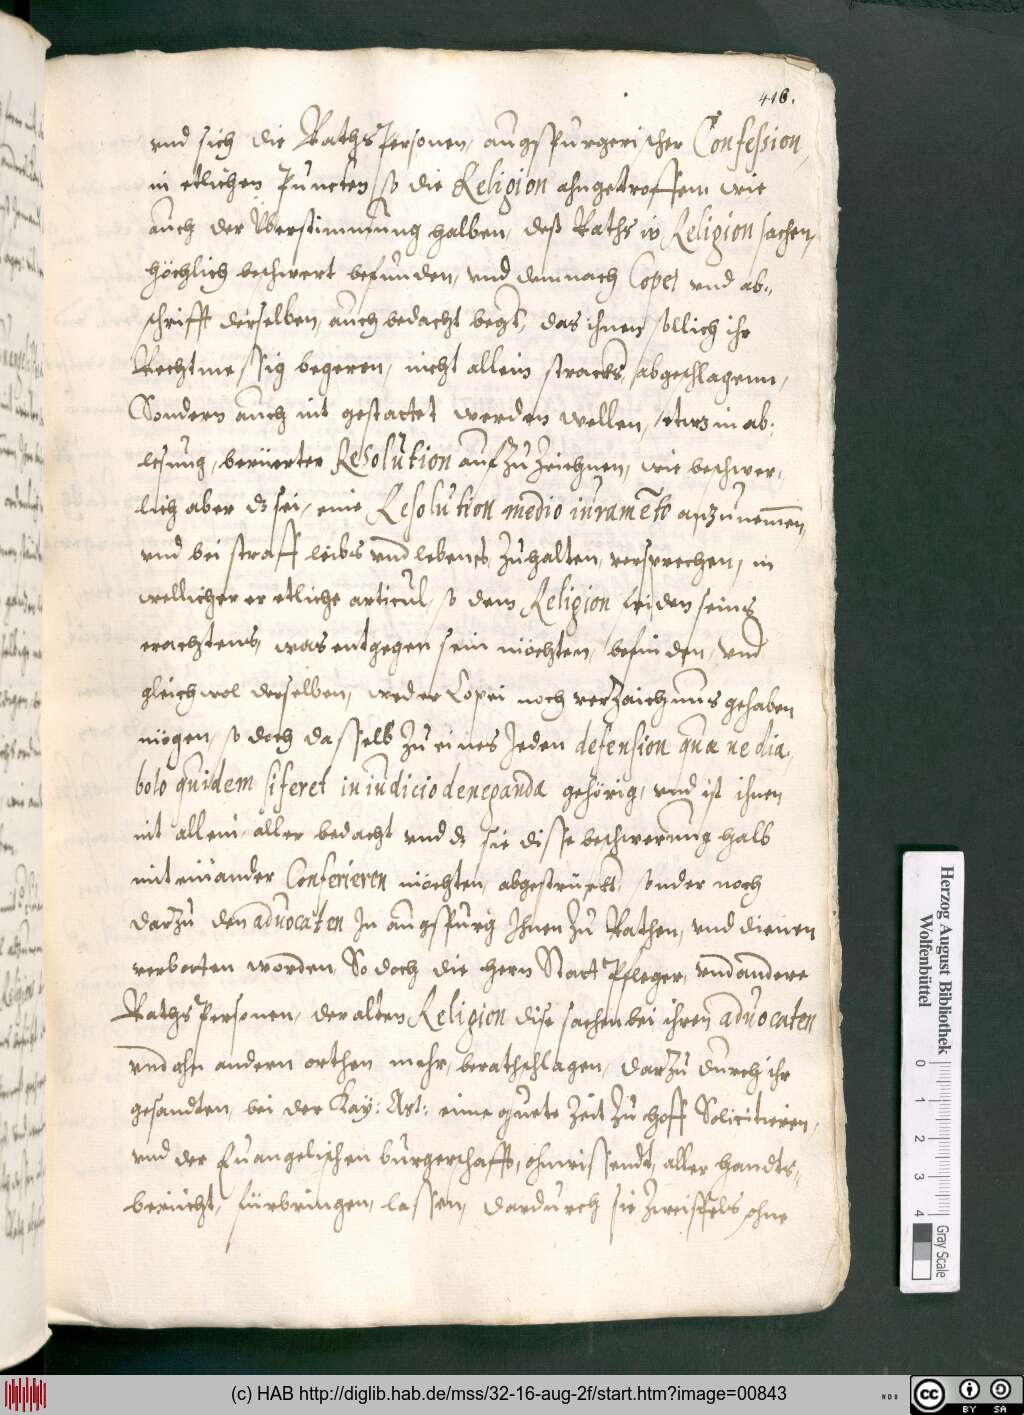 416.
vnd sich die Raths Personen, augspurgerischer Confession,
in etlichen Puncten, so die Religion ahngetroffenn wie
auch der Vberstimmung halben, deß Raths in Religion sachen,
höchlich beschwert befunden, vnd demnach Copei vnd ab-
schrifft derselben, auch bedacht begert, das ihnen sollich ihr
Rechtmessig begeren, nicht allein stracks, abgeschlagenn,
Sondern auch nit gestattet werden wellen, etwas in ab-
lesung, berüerter Resolution auffzuzeichnen, wie beschwer-
lich aber es sei, eine Resolution medio iuramento anzunemen,
vnd bei straff leibs vnd lebens, zuhalten, versprechen, in
wellicher er etliche articul, so dem Religion friden seins
erachtens, was entgegen sein möchten, befinden, vnd
gleichwol derselben, weder Copei noch verzaichnus gehaben
mögen, so doch dasselb zu eines Jeden defension quæ ne dia-
bolo quidem si feret in iudicio deneganda gehörig, vnd ist ihnen
nit allein, aller bedacht vnd das sie disse beschwerung halb
mit einander Conferieren möchten, abgestrückt, sonder noch
darzu den aduocaten In augspurg Ihnen zu Rathen, vnd dienen
verbotten worden, So doch die hern Statt Pfleger, vnd andere
Raths Personen, der alten Religion dise sachen bei ihren aduocaten
vnd ahn andern orthen mehr, berathschlagen, darzu durch ihr
gesandten, bei der Kay: Mst: eine guete zeit zu hoff Solicitieren,
vnd der Euangelischen burgerschafft, ohnwissendt, aller handts-
bericht, fürbringen, lassen, dardurch sie zweiffels ohne
Herzog August Bibliothek
Wolfenbüttel
0 1 2 3 4
Gray Scale
(c) HAB http://diglib.hab.de/mss/32-16-aug-2f/start.htm?image=00843
WDB
cc BY SA